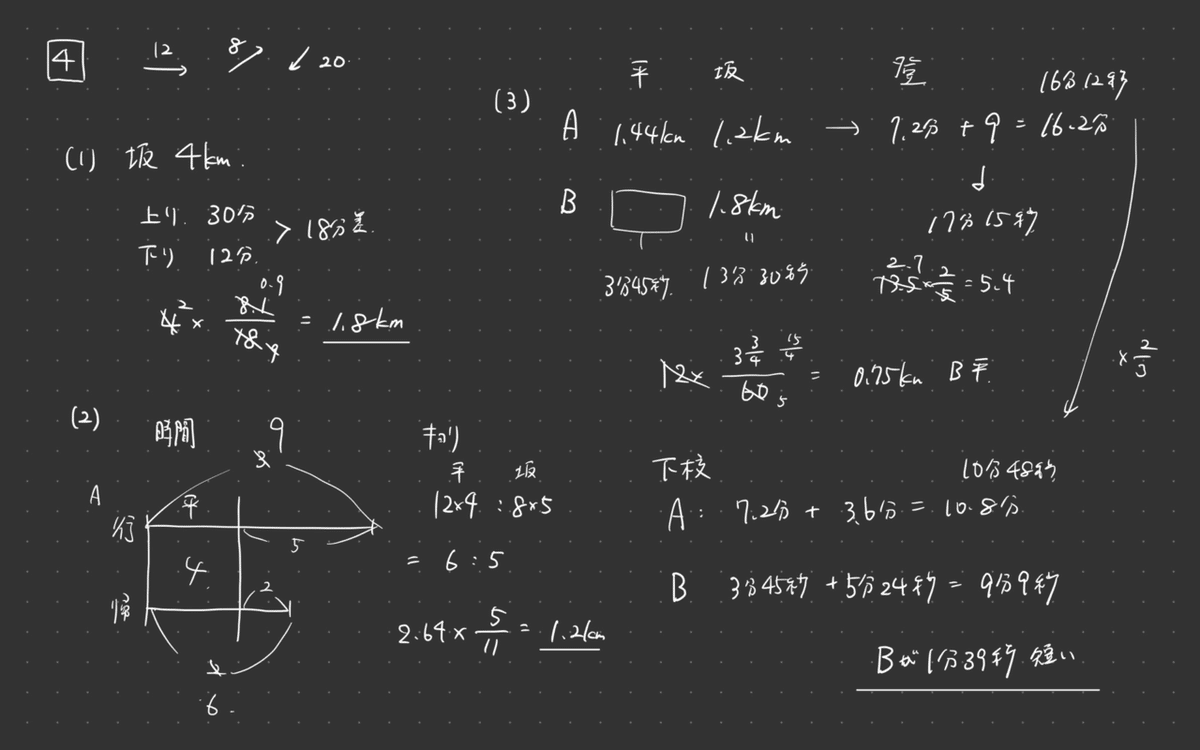 4 12 → 8 ↗ ↙ 20
(1) 坂 4km.
上り. 30分
下り 12分.
> 18分差.
4 2 × 8.1 0.9 / 18 9 = 1.8km
(2) 時間 9
3
A
行 平 5
4
帰 2
2
6.
キョリ
平 坂
12×4 : 8×5
= 6 : 5
2.64 × 5/11 = 1.2km
(3) 平 坂 登 16分12秒
A 1.44km 1.2km → 7.2分 + 9 = 16.2分
B 1.8km
〃 17分15秒
3分45秒 13分30秒 13.5 2.7 × 2/5 = 5.4
12× 3 3/4 15/4 / 60 5 = 0.75km B平.
× 2/3
下校 10分48秒
A: 7.2分 + 3.6分 = 10.8分
B 3分45秒 + 5分24秒 = 9分9秒
Bが1分39秒 短い